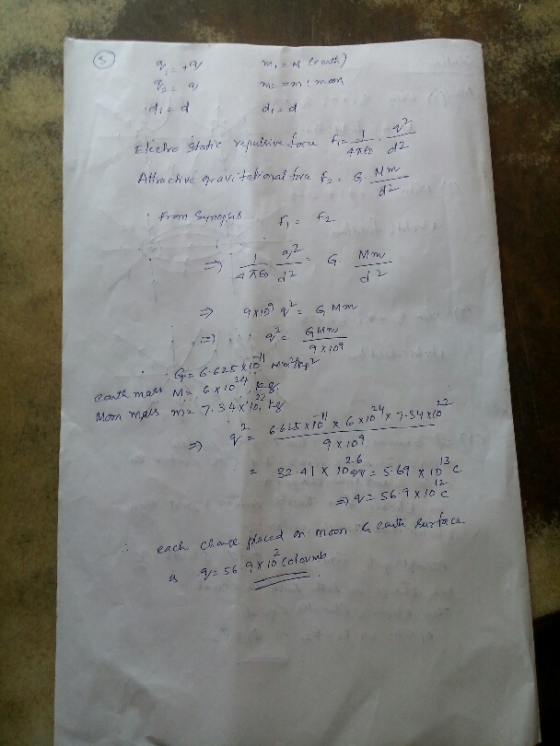 5
q1 = +q m1 = M (earth)
q2 = q m2 = m: moon
d1 = d d1 = d
Electro static repulsive force F1 = 1/4πε0 · q²/d²
Attractive gravitational force F2 = G · Mm/d²
From Synopsis F1 = F2
⇒ 1/4πε0 q²/d² = G · Mm/d²
⇒ 9×10⁹ q² = G Mm
⇒ q² = GMm/9×10⁹
G = 6.625×10⁻¹¹ Nm²/kg²
earth mass M = 6×10²⁴ kg
Moon mass m = 7.34×10²² kg
⇒ q² = 6.625×10⁻¹¹ × 6×10²⁴ × 7.34×10²²/9×10⁹
= 32.41 × 10²⁶ = 5.69 × 10¹³ C
⇒ q = 56.9×10¹² C
∴ each charge placed on moon & earth surface
is q = 56.9×10² Coloumb